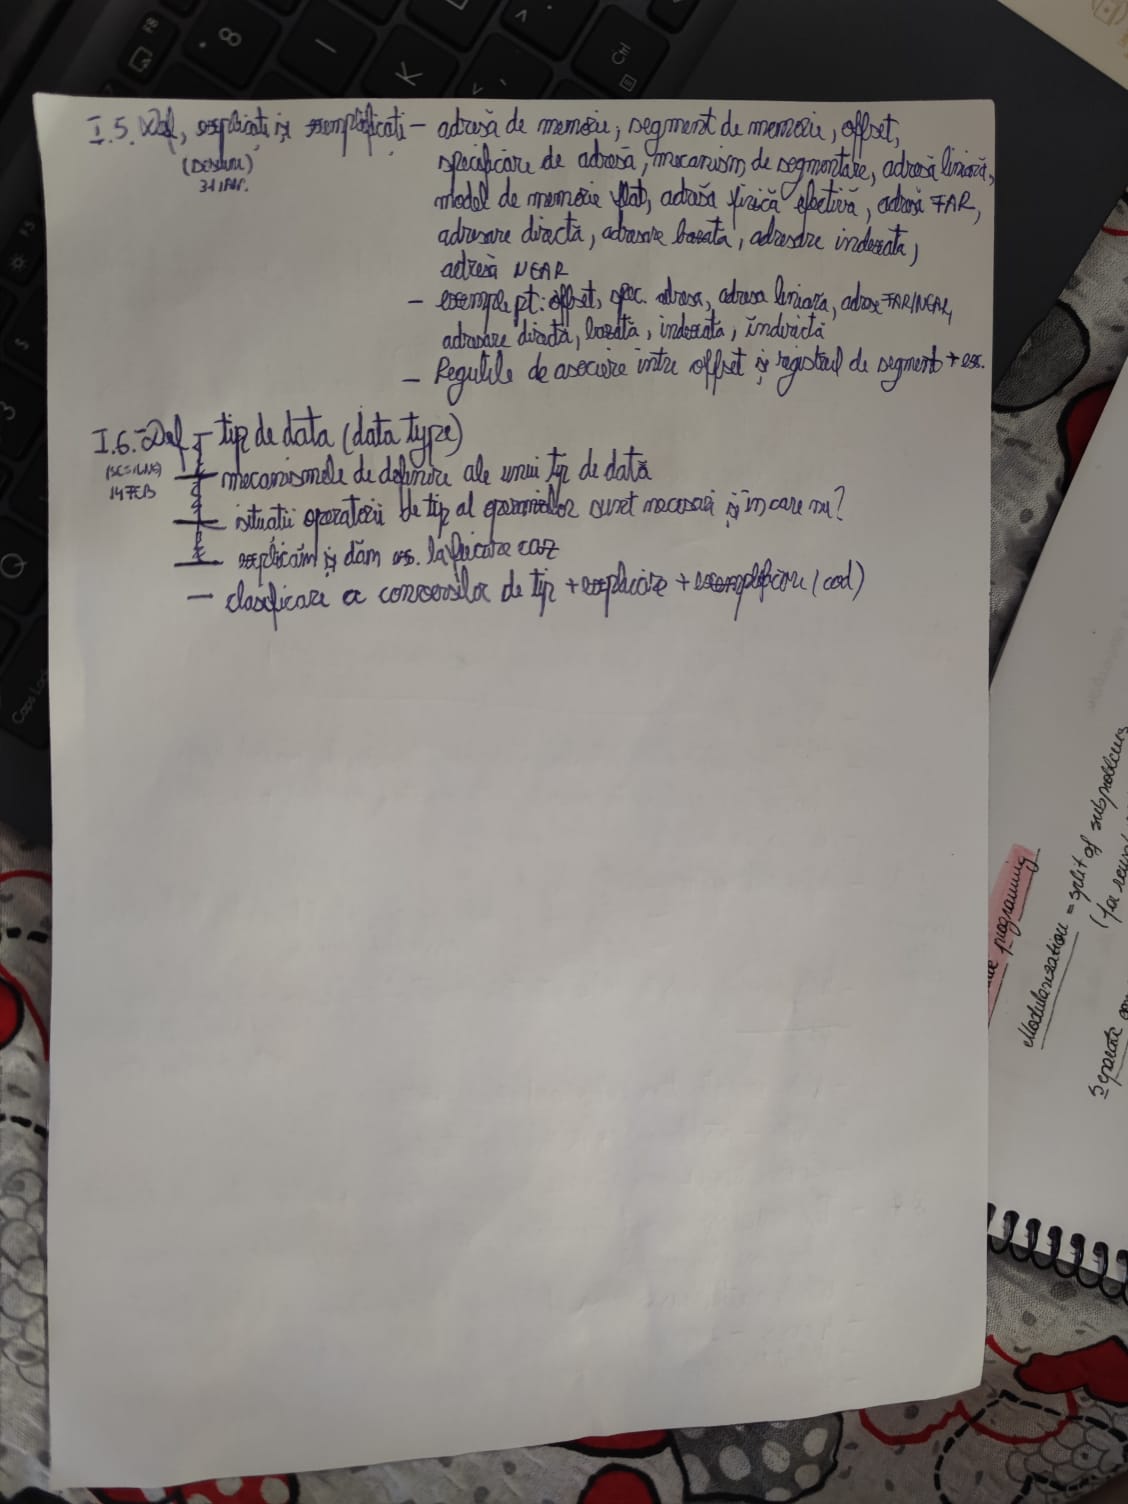 I.5. Def, explicați și exemplificați – adresă de memorie, segment de memorie, offset,
31 IAN.
specificare de adresă, mecanism de segmentare, adresă liniară,
model de memorie flat, adresă fizică efectivă, adresă FAR,
adresare directă, adresare bazata, adresare indexata,
adresă NEAR
– exemple pt: offset, spec. adresa, adresa liniara, adrese FAR/NEAR,
adresare directă, bazată, indexată, indirectă
– Regulile de asociere intre offset și registrul de segment + ex.
I.6. – Def – tip de data (data type)
14 FEB
– mecanismele de definire ale unui tip de dată
– situatii operatorii de tip al operanzilor sunt necesari și in care nu?
explicăm și dăm ex. la fiecare caz
– clasificare a conversiilor de tip + explicare + exemplificare (cod)
programming
Modularization = split of subproblems
Separate
8
K
L
Ctrl
Caps Lock
Q
F8
F3